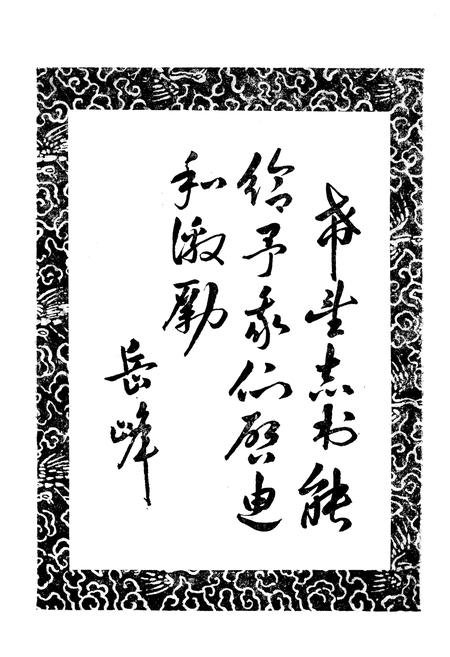 希望志书能
给予我们启迪
和激励
岳峰